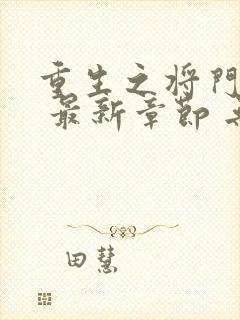 重生之将门
最新章节
田慧